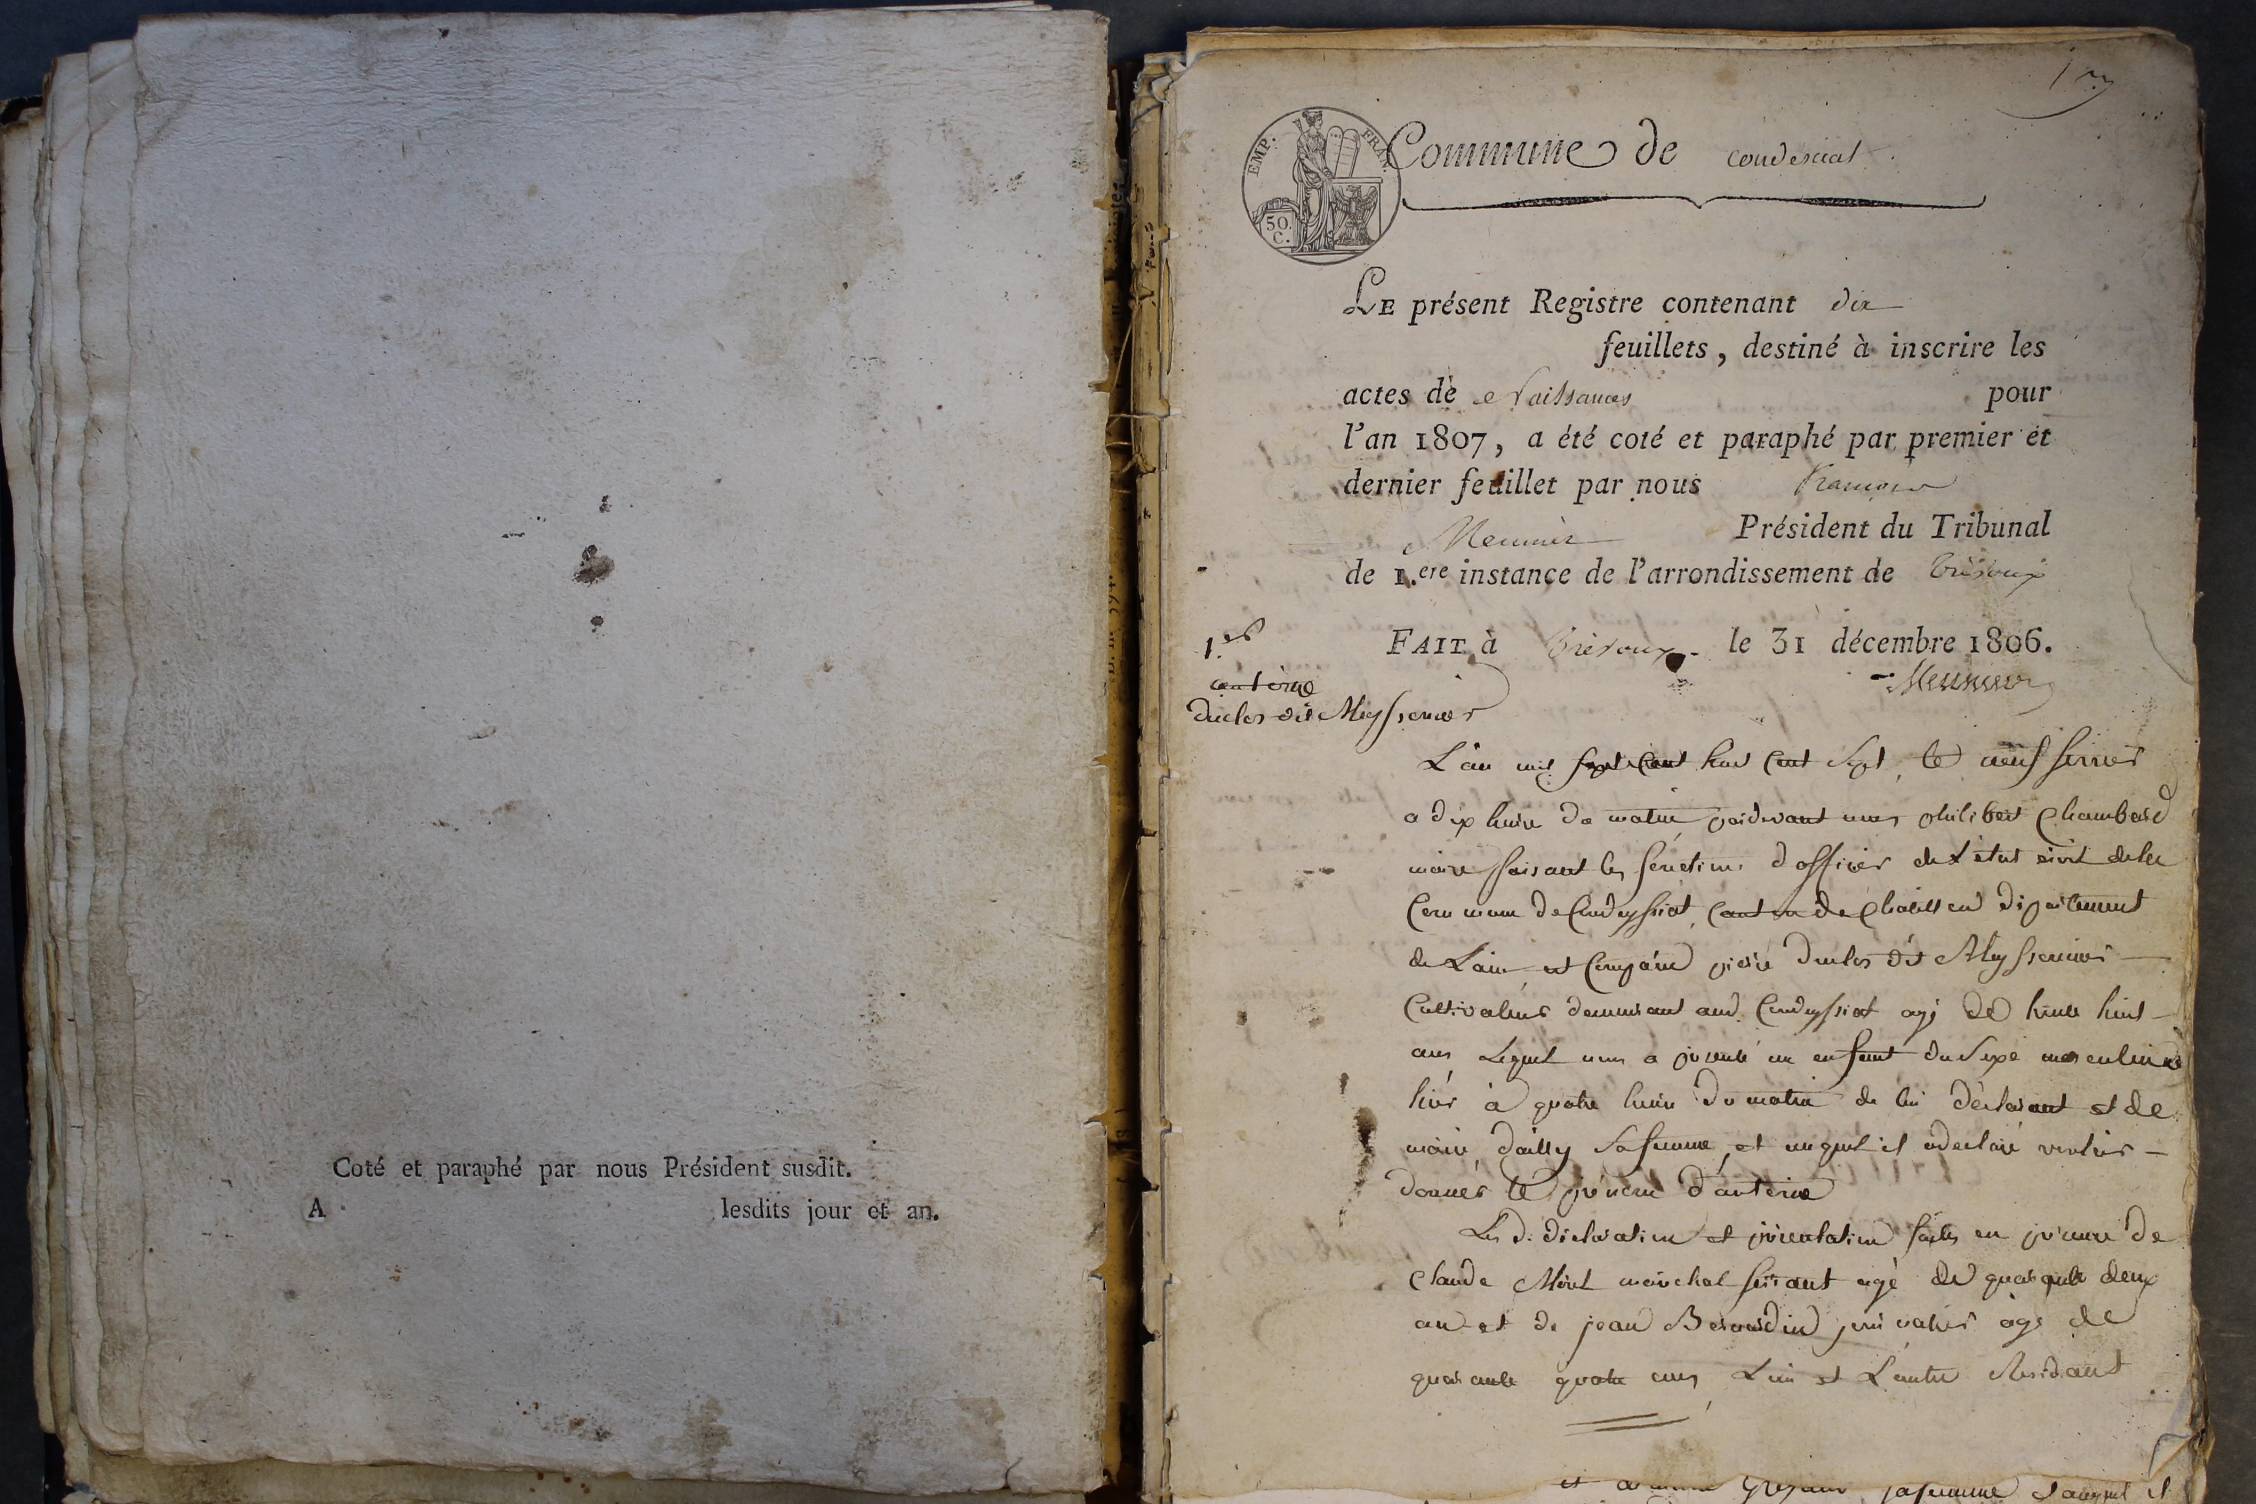 Coté et paraphé par nous Président susdit.
A lesdits jour et an.
1er
EMP. FRAN.
50 C.
Commune de condesciat
LE présent Registre contenant dix
feuillets, destiné à inscrire les
actes de Naissances pour
l'an 1807, a été coté et paraphé par premier et
dernier feuillet par nous François
Meunier Président du Tribunal
de 1.ere instance de l'arrondissement de Trévoux
FAIT à Trévoux le 31 décembre 1806.
Meunier
1.er
antoine
duclos dit Meyssonier
L'an mil sept cent huit cent sept, le neuf fevrier
a dix heure du matin pardevant nous philibert Chambard
maire faisant les fonctions d'officier de L'état civil de la
Commune de Condeyssiat, canton de Chatillon département
de L'ain est Comparu pierre duclos dit Meyssonier
Cultivateur demeurant aud. Condeyssiat agé de trente huit
ans Lequel nous a presenté un enfant du Sexe masculin né
hier à quatre heure du matin de lui déclarant et de
marie dailly Sa femme, et auquel il a declaré vouloir
donner le prénom d'antoine
Les d. déclaration et présentation faites en présence de
Claude marechal ferrant agé de quarante deux
ans et de jean Bernardin agé de
quarante quatre ans L'un et L'autre Résidant
sa femme et auquel il